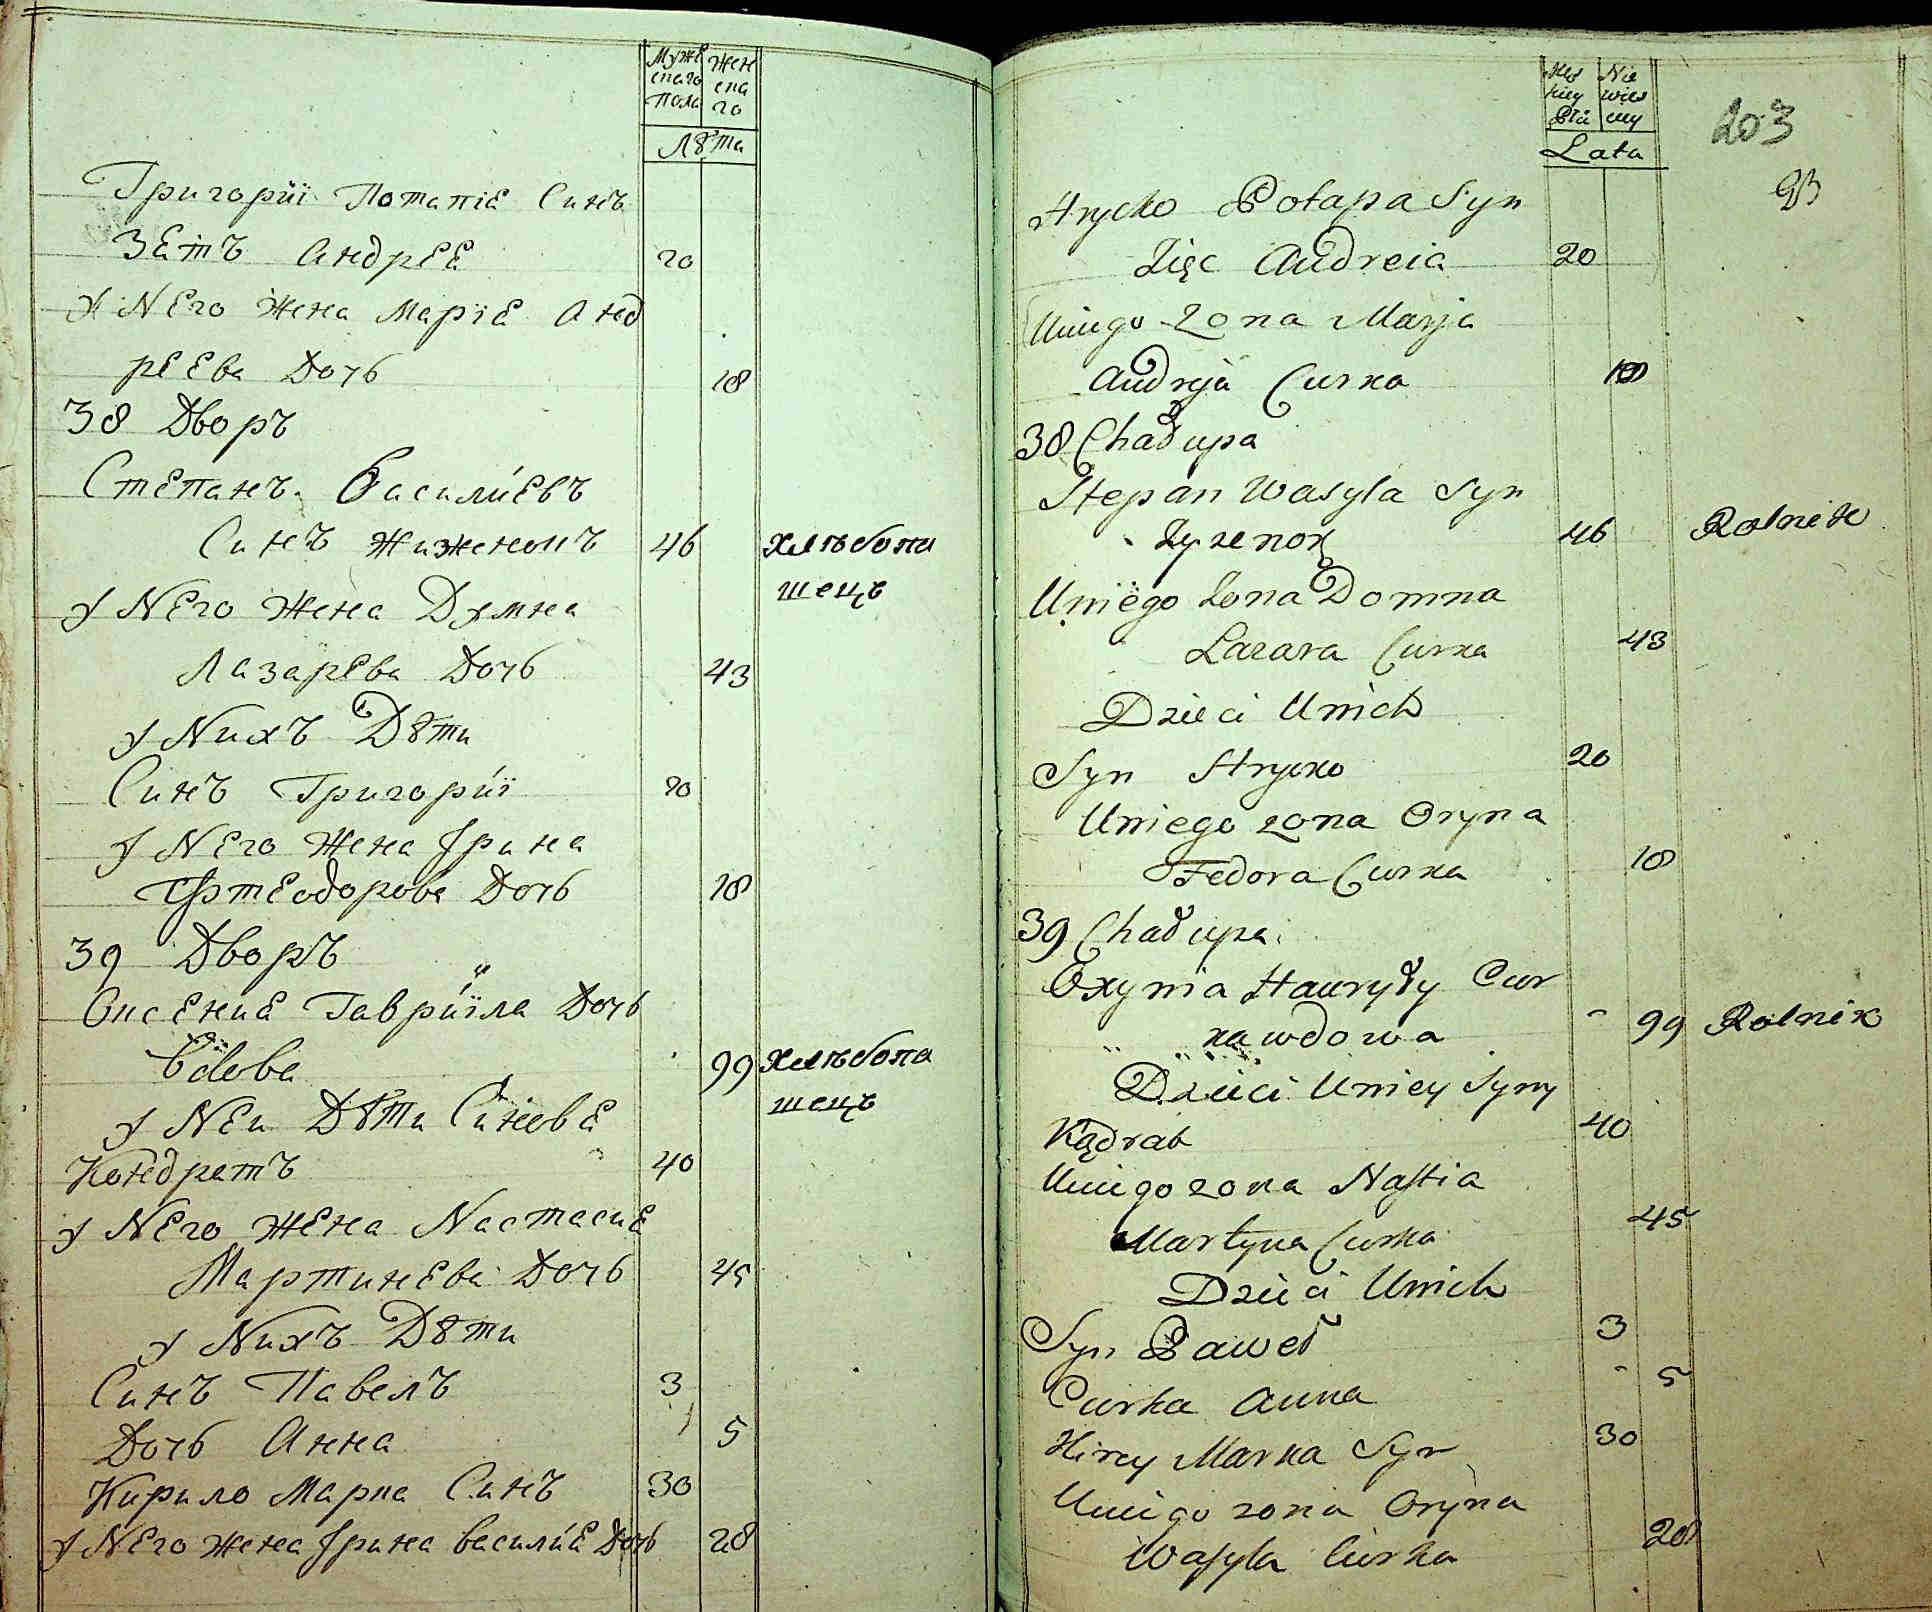 Мужескаго Пола
Женскаго
Лѣта
Григорїї Потапіа Синъ
Зать Андреа 20
У Него Жена Маріа Анд
реева Дочь 18
38 Дворъ
Степанъ Василиевъ
Синъ Жизненокъ 46 хлѣбопа
шецъ
У Него Жена Думна
Лазарева Дочь 43
У Нихъ Дѣти
Синъ Григорїї 20
У Него Жена Ірина
Фтеодорова Дочь 18
39 Дворъ
Оксениа Гавриїла Дочь
Вдова 99 хлѣбопа
шецъ
У Неи Дѣти Синове
Кондратъ 40
У Него Жена Настасиа
Мартинева Дочь 45
У Нихъ Дѣти
Синъ Павелъ 3
Дочь Анна 5
Кирило Марка Синъ 30
У Него Жена Ірина Василиа Дочь 28
Męs
kiey
Płci
Nie
wies
ciey
Lata
203
93
Hrycko Potapa Syn
Zięc Andreia 20
Uniego Zona Marja
Andreja Curka 18
38 Chałupa
Stepan Wasyla Syn
Zyzenok 46 Rolnik
Uniego Zona Domna
Lazara Curka 43
Dzieci Unich
Syn Hrycko 20
Uniego zona Oryna
Fedora Curka 18
39 Chałupa
Oxynia Hauryły Cur
ka wdowa 99 Rolnik
Dzieci Uniey Syny
Kądrat 40
Uniego zona Nastia
Martyna Curka 45
Dzieci Unich
Syn Paweł 3
Curka Anna 5
Kirey Marka Syn 30
Uniego zona Oryna
Wasyla Curka 28